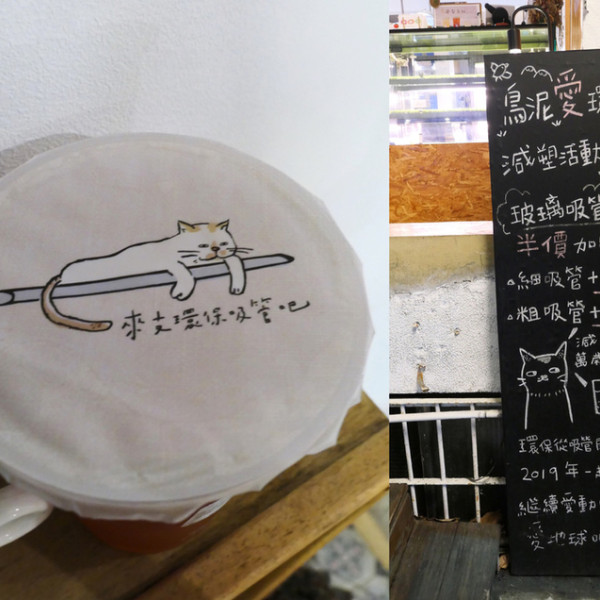 來支環保吸管吧
鳥泥愛環
減塑活動
玻璃吸管
半價加
細吸管+
粗吸管+
減
萬
環保從吸管
2019年一起
繼續愛動
愛地球